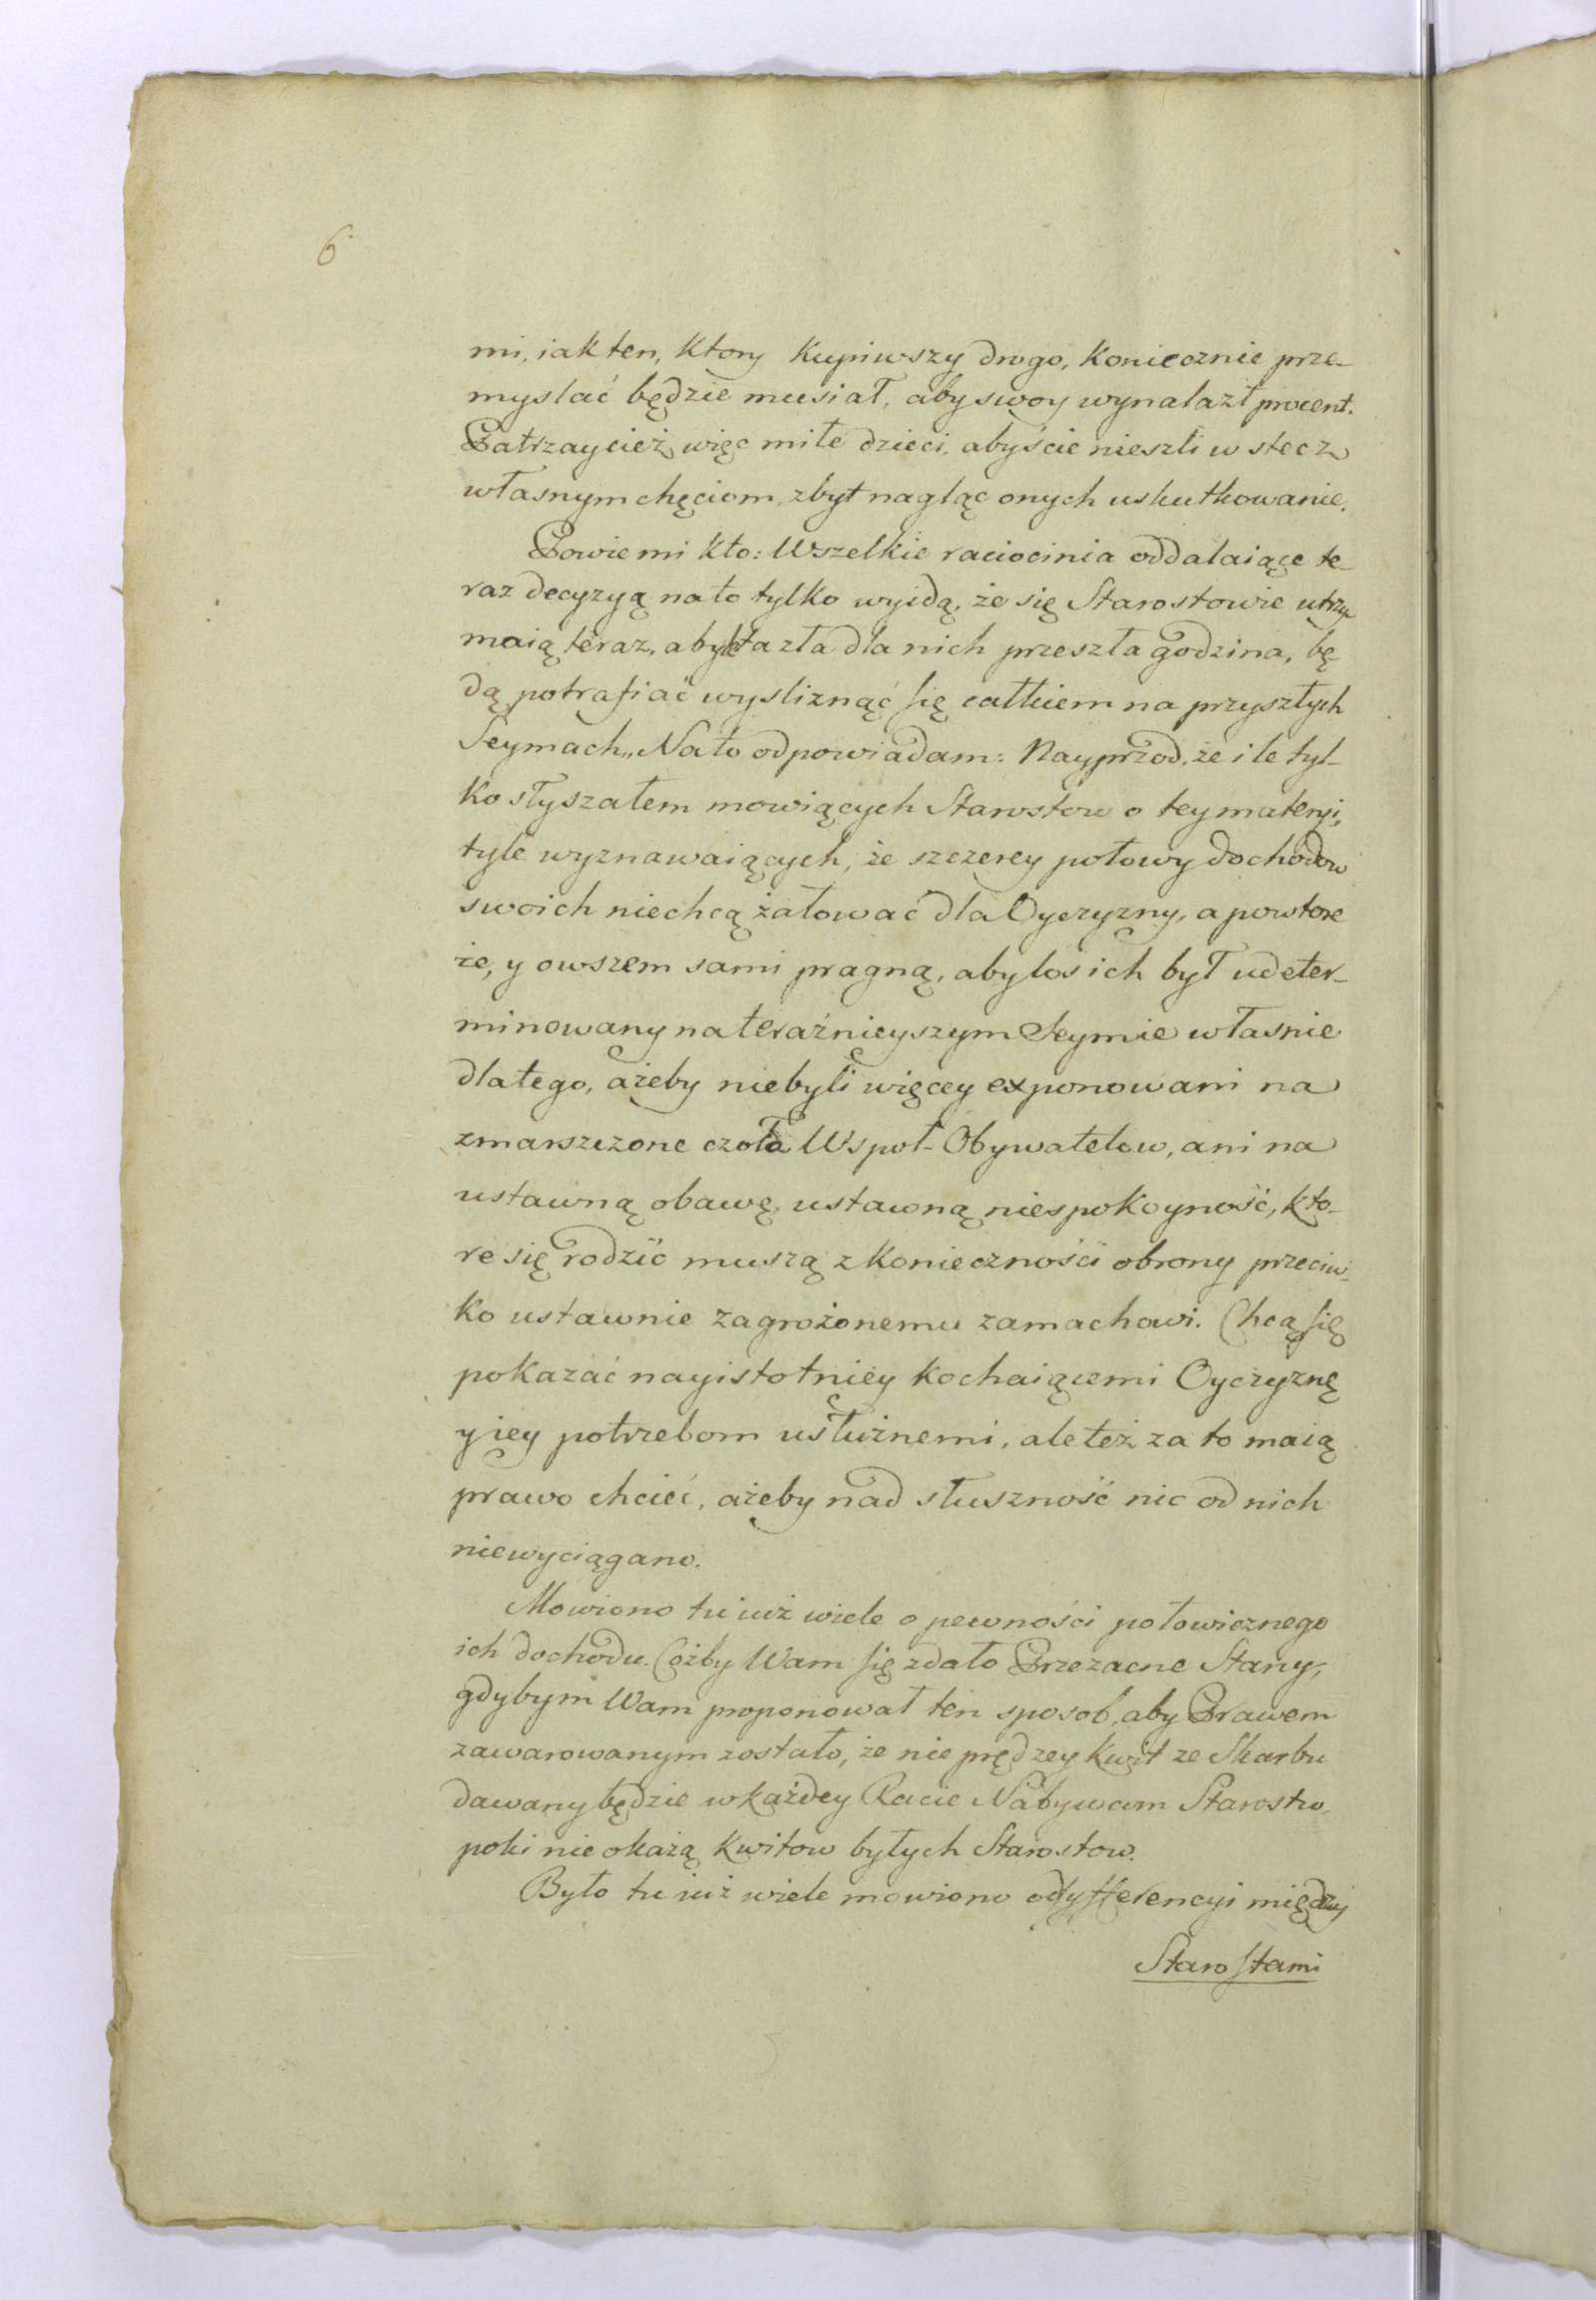 6
mi, iak ten, Ktory Kupiwszy drogo, Koniecznie prze-
myslać będzie musiał, aby swoy wynalazł procent.
Patrzaycież więc miłe dzieci, abyście nieszli w stecz
własnym chęciom, zbyt nagląc onych uskutkowanie.
Powie mi kto: Wszelkie raciocinia oddalaiące te-
raz decyzyą na to tylko wyidą, że się Starostowie utrzy-
maią teraz, a byle ta zła dla nich przeszła godzina, bę-
dą potrafiać wysliznąć się całkiem na przyszłych
Seymach„ Na to odpowiadam: Nayprzod, że ile tyl-
ko słyszałem mowiących Starostow o tey materyi,
tyle wyznawaiących, że szczerey połowy dochodow
swoich niechcą żałować dla Oyczyzny, a powtore
że, y owszem sami pragną, aby los ich był udeter-
minowany na teraźnieyszym Seymie własnie
dlatego, ażeby niebyli więcey exponowani na
zmarszczone czoła Wspoł-Obywatelow, ani na
ustawną obawę, ustawną niespokoyność, kto-
re się rodzić muszą z Konieczności obrony przeciw-
ko ustawnie zagrożonemu zamachowi. Chcą się
pokazać nayistotniey kochaiącemi Oyczyznę
y iey potrzebom usłużnemi, ale też za to maią
prawo chcieć, ażeby nad słuszność nic od nich
niewyciągano.
Mowiono tu iuż wiele o pewności połowicznego
ich dochodu. Cożby Wam się zdało Przezacne Stany,
gdybym Wam proponował ten sposob, aby Prawem
zawarowanym zostało, że nie prędzey kwit ze Skarbu
dawany będzie w każdey Racie Nabywcom Starostw,
poki nie okażą kwitow byłych Starostow.
Było tu iuż wiele mowiono o dyfferencyi między
Starostami